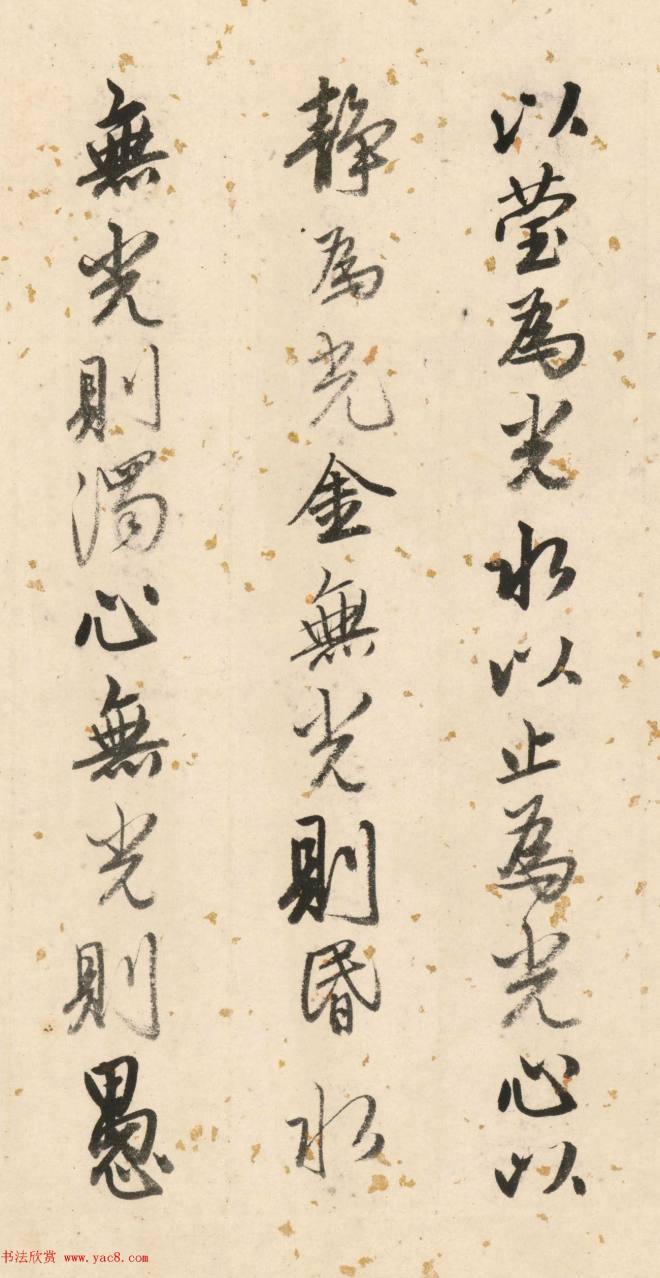 以莹為光水以止為光心以
静為光金無光則昬水
無光則濁心無光則愚
书法欣赏 www.yac8.com